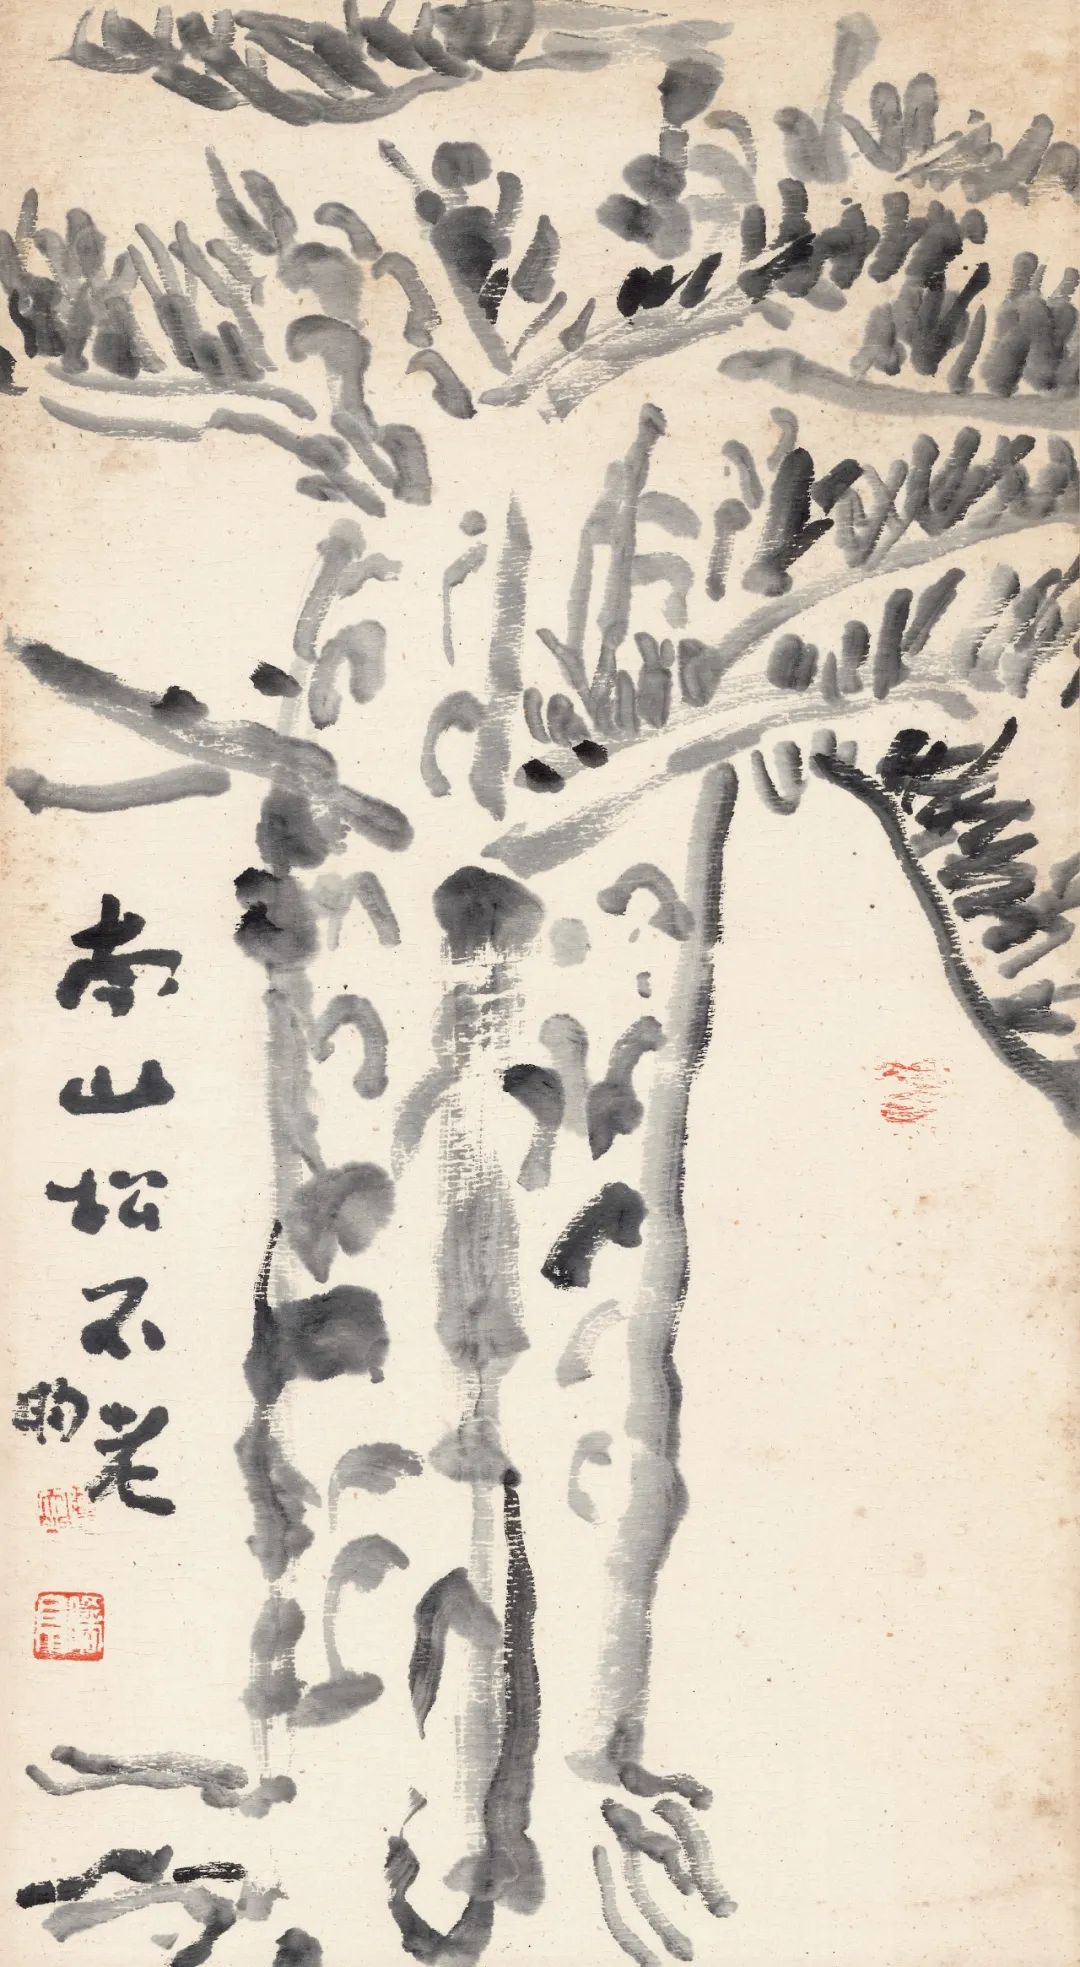 南山松不老
昀